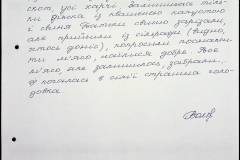 скот, усі харчі, залишилась тіль-
ки діжка із квашеною капустою
і свиня. Батьки свиню зарізали,
але прийшли із сільради (видно,
хтось доніс), попросили посмажи-
ти м'ясо, наїлися добре. Все
м'ясо, але залишилось, забрали.
І почалася в сім'ї страшна голо-
довка.